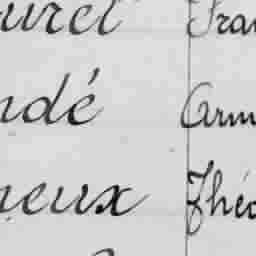 urel Fran
ndé Arm
neux Théo